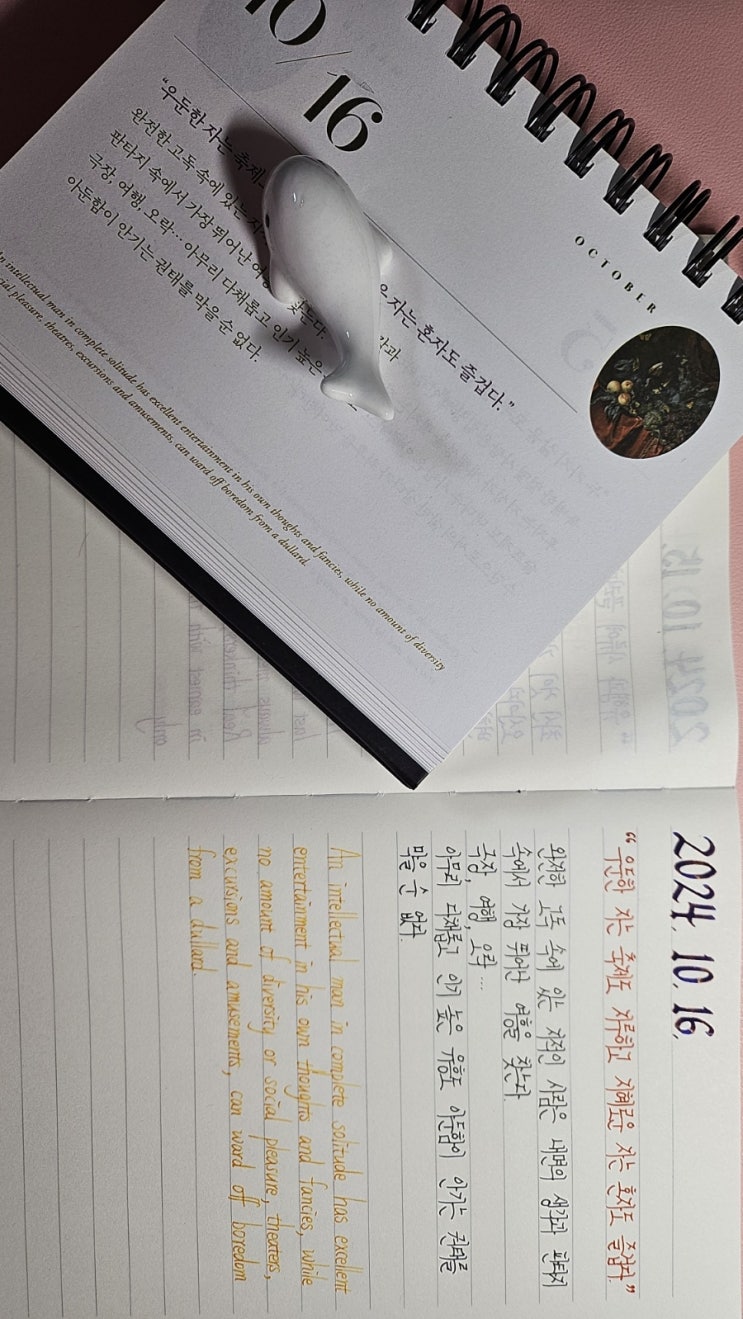 10/16
OCTOBER
"우둔한 자는 축제 자는 혼자도 즐겁다."
완전한 고독 속에 있는 지
판타지 속에서 가장 뛰어난 여 찾는다.
극장, 여행, 오락… 아무리 다채롭고 인기 높은
아둔함이 안기는 권태를 막을 순 없다.
An intellectual man in complete solitude has excellent entertainment in his own thoughts and fancies, while no amount of diversity
social pleasure, theatres, excursions and amusements, can ward off boredom from a dullard.
2024. 10. 16.
"우둔한 자는 축제도 지루하고 지혜로운 자는 혼자도 즐겁다."
완전한 고독 속에 있는 지적인 사람은 내면의 생각과 판타지
속에서 가장 뛰어난 여흥을 찾는다.
극장, 여행, 오락 ...
아무리 다채롭고 인기 높은 유흥도 아둔함이 안기는 권태를
막을 순 없다.
An intellectual man in complete solitude has excellent
entertainment in his own thoughts and fancies, while
no amount of diversity or social pleasure, theaters,
excursions and amusements, can ward off boredom
from a dullard.